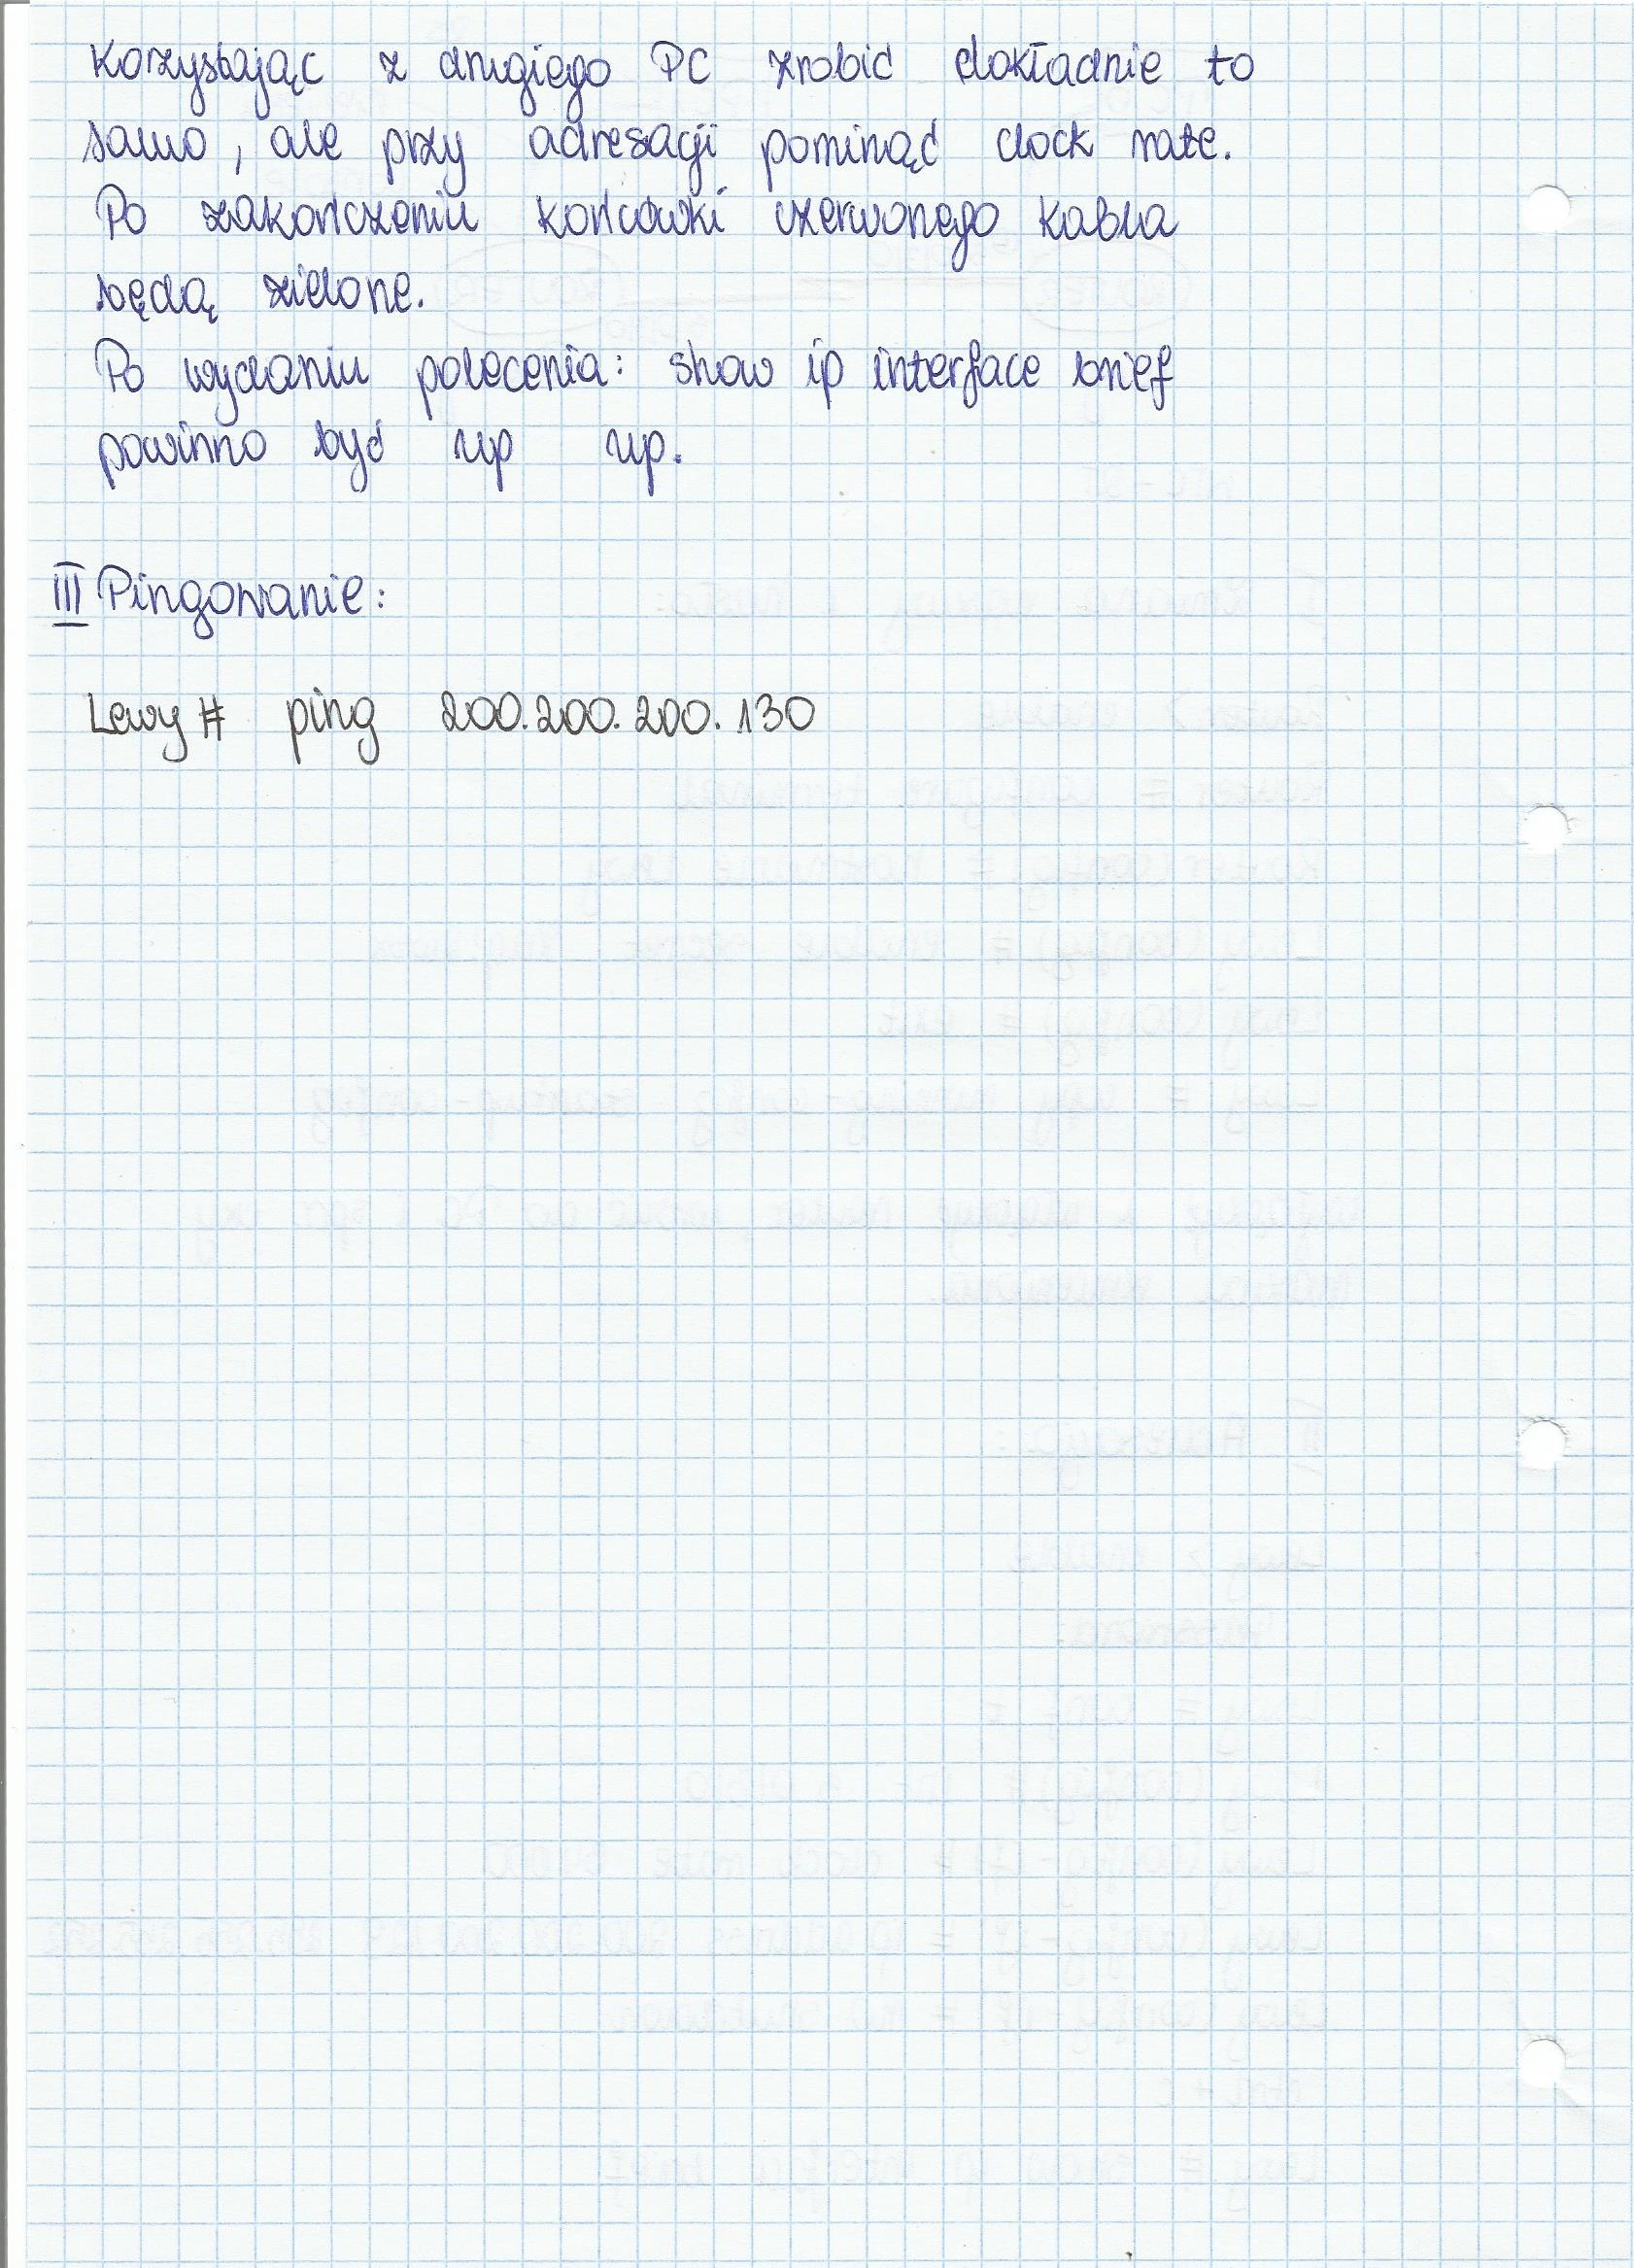 Korzystając z drugiego PC zrobić dokładnie to
samo, ale przy adresacji pominąć clock rate.
Po zakończeniu końcówki czerwonego kabla
będą zielone.
Po wydaniu polecenia: show ip interface brief
powinno być up up.
III Pingowanie:
Lewy # ping 200.200.200.130